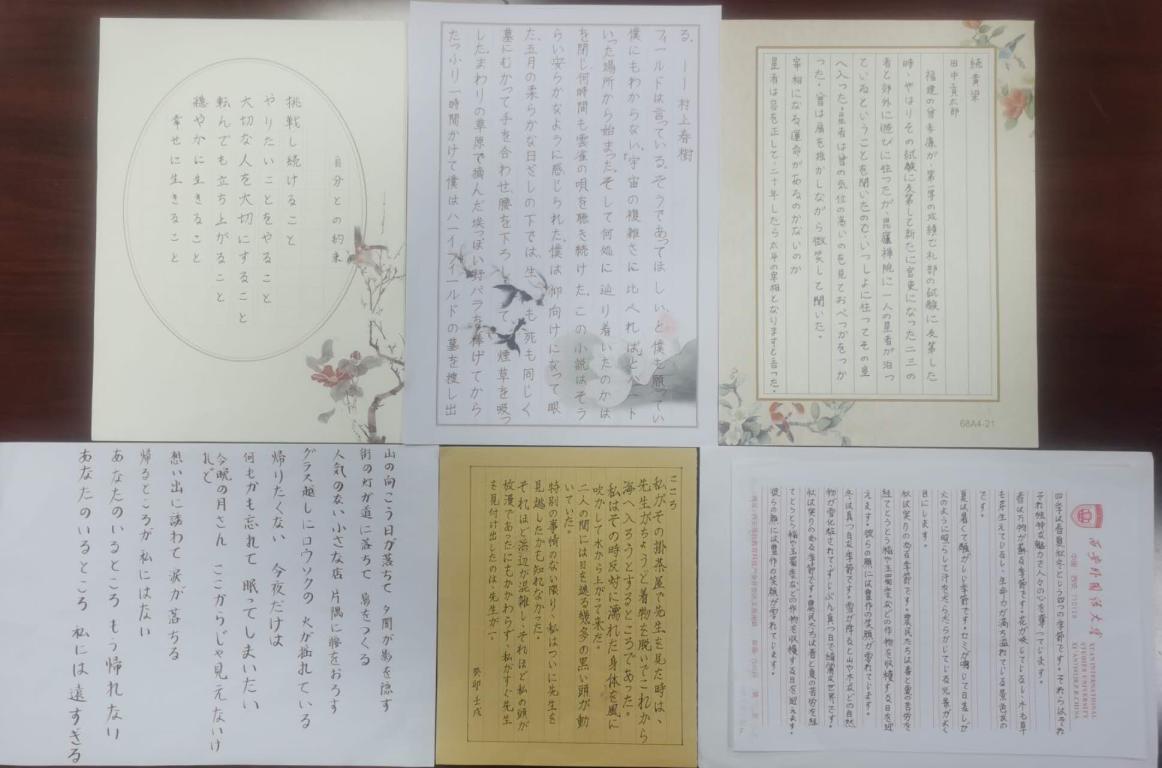 自分との約束
挑戦し続けること
やりたいことをやること
大切な人を大切にすること
転んでも立ち上がること
穏やかに生きること
幸せに生きること
る。 ーー村上春樹
フィールドは言っている。そうであってほしいと僕も願ってい
僕にもわからない。「宇宙の複雑さに比べれば」とハート
いった場所から始まった。そして何処に辿り着いたのかは
を閉じ何時間も雲雀の唄を聴き続けた。この小説はそう
らい安らかなように感じられた。僕は仰向けになって眼
た。五月の柔らかな日ざしの下では、生も死も同じく
墓にむかって手を合わせ、腰を下ろして煙草を吸っ
した。まわりの草原で摘んだ埃っぽい野バラを捧げてから
たっぷり一時間かけて僕はハートフィールドの墓を捜し出
続黄梁
田中貢太郎
福建の曽孝廉が、第一等の成績で礼部の試験に及第した
時、やはりその試験に及第して新たに官吏になった二三の
者と郊外に遊びに往ったが、毘廬禅院に一人の星者が泊っ
ているということを聞いたので、いっしょに往ってその室
へ入った。星者は曽の気位の高いのを見ておべっかをつか
った。曽は扇を揺かしながら微笑して聞いた。
宰相になる運命があるのかないのか
星者は容を正して、二十年したら太平の宰相となりますと言った。
68A4-21
山の向こう日が落ちて 夕闇が影を隠す
街の灯が道に落ちて 島をつくる
人気のない小さな店 片隅に腰をおろす
グラス越しにロウソクの 火が揺れている
帰りたくない 今夜だけは
何もかも忘れて 眠ってしまいたい
今晩の月さん ここからじゃ見えないけ
れど
想い出に誘われて 涙が落ちる
帰るところが 私にはない
あなたのいるところ もう帰れない
あなたのいるところ 私には遠すぎる
こころ
私がその掛茶屋で先生を見た時は、
先生がちょうど着物を脱いでこれから
海へ入ろうとするところであった。
私はその時反対に濡れた身体を風に
吹かして水から上がって来た。
二人の間には目を遮る幾多の黒い頭が動
いていた。
特別の事情のない限り、私はついに先生を
見逃したかも知れなかった。
それほど浜辺が混雑し、それほど私の頭が
放漫であったにもかかわらず、私がすぐ先生
を見付け出したのは、先生が一
癸卯壬戌
西安外国语大学
XI'AN INTERNATIONAL
STUDIES UNIVERSITY
XI'AN 710128 P.R.CHINA
中国 西安 710128
四季は春夏秋冬という四つの季節です。それらはそれ
ぞれ独特な魅力で人々の心を奪っています。
春は万物が蘇る季節です。花が咲いているし、木も草
も芽生えているし、生命力が満ち溢れている景色ま
です。
夏は暑くて騒がしい季節です。セミが鳴いて日差しが
火のように照らして汗をだらだらかいている児童がよく
目にします。
秋は実りのある季節です。農民たちは春と夏の苦労を
経てとうとう稲や玉蜀黍などの作物を収穫する日を迎
えます。彼らの顔には豊作の笑顔が零れています。
冬は真っ白な季節です。雪が降ると山や木などの自然
物が雪化粧されてずいぶん真っ白で綺麗な世界です。
秋は実りのある季節です。農民たちは春と夏の苦労を経
てとうとう稲や玉蜀黍などの作物を収穫する日を迎えます。
彼らの顔には豊作の笑顔が零れています。